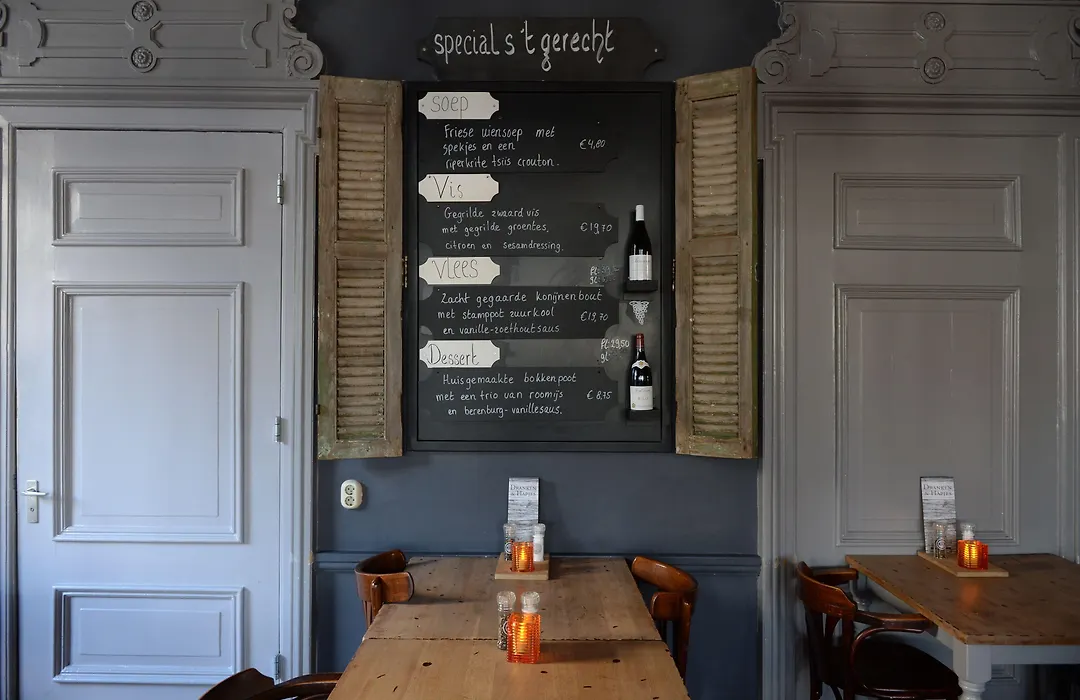 special s 't gerecht
soep
Friese uiensoep met
spekjes en een €4,80
riperkrite tsiis crouton.
Vis
Gegrilde zwaardvis
met gegrilde groentes, €19,70
citroen en sesamdressing.
Vlees
Zacht gegaarde konijnenbout
met stamppot zuurkool €19,70
en vanille-zoethoutsaus
Dessert
Pl: 29,50
gl:
Huisgemaakte bokkenpoot
met een trio van roomijs €8,75
en berenburg-vanillesaus.
DRANKEN
& HAPJES
DRANKEN
& HAPJES